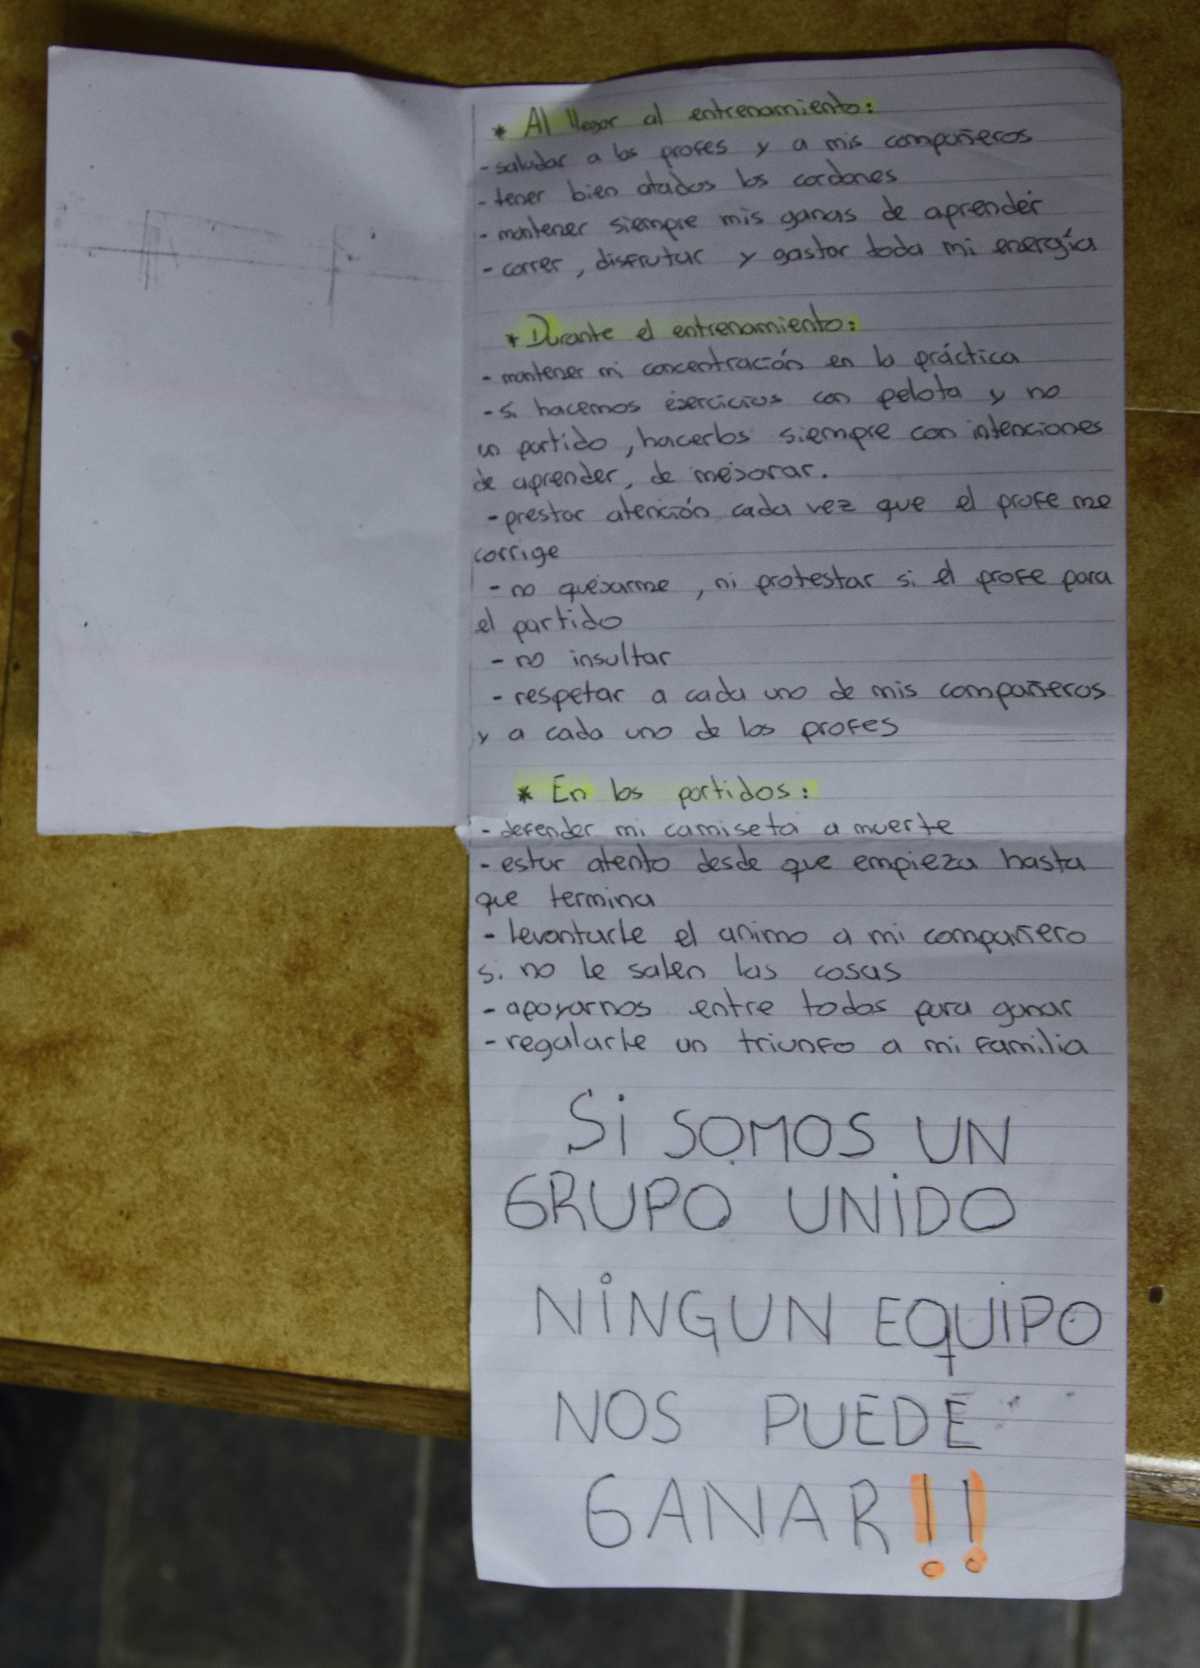 * Al llegar al entrenamiento:
- saludar a los profes y a mis compañeros
- tener bien atados los cordones
- mantener siempre mis ganas de aprender
- correr, disfrutar y gastar toda mi energía
* Durante el entrenamiento:
- mantener mi concentración en la práctica
- si hacemos ejercicios con pelota y no
un partido, hacerlos siempre con intenciones
de aprender, de mejorar.
- prestar atención cada vez que el profe me
corrige
- no quejarme, ni protestar si el profe para
el partido
- no insultar
- respetar a cada uno de mis compañeros
y a cada uno de los profes
* En los partidos:
- defender mi camiseta a muerte
- estar atento desde que empieza hasta
que termina
- levantarle el animo a mi compañero
si no le salen las cosas
- apoyarnos entre todos para ganar
- regalarle un triunfo a mi familia
Si SOMOS UN
GRUPO UNiDO
NiNGUN EQUIPO
NOS PUEDE
GANAR!!